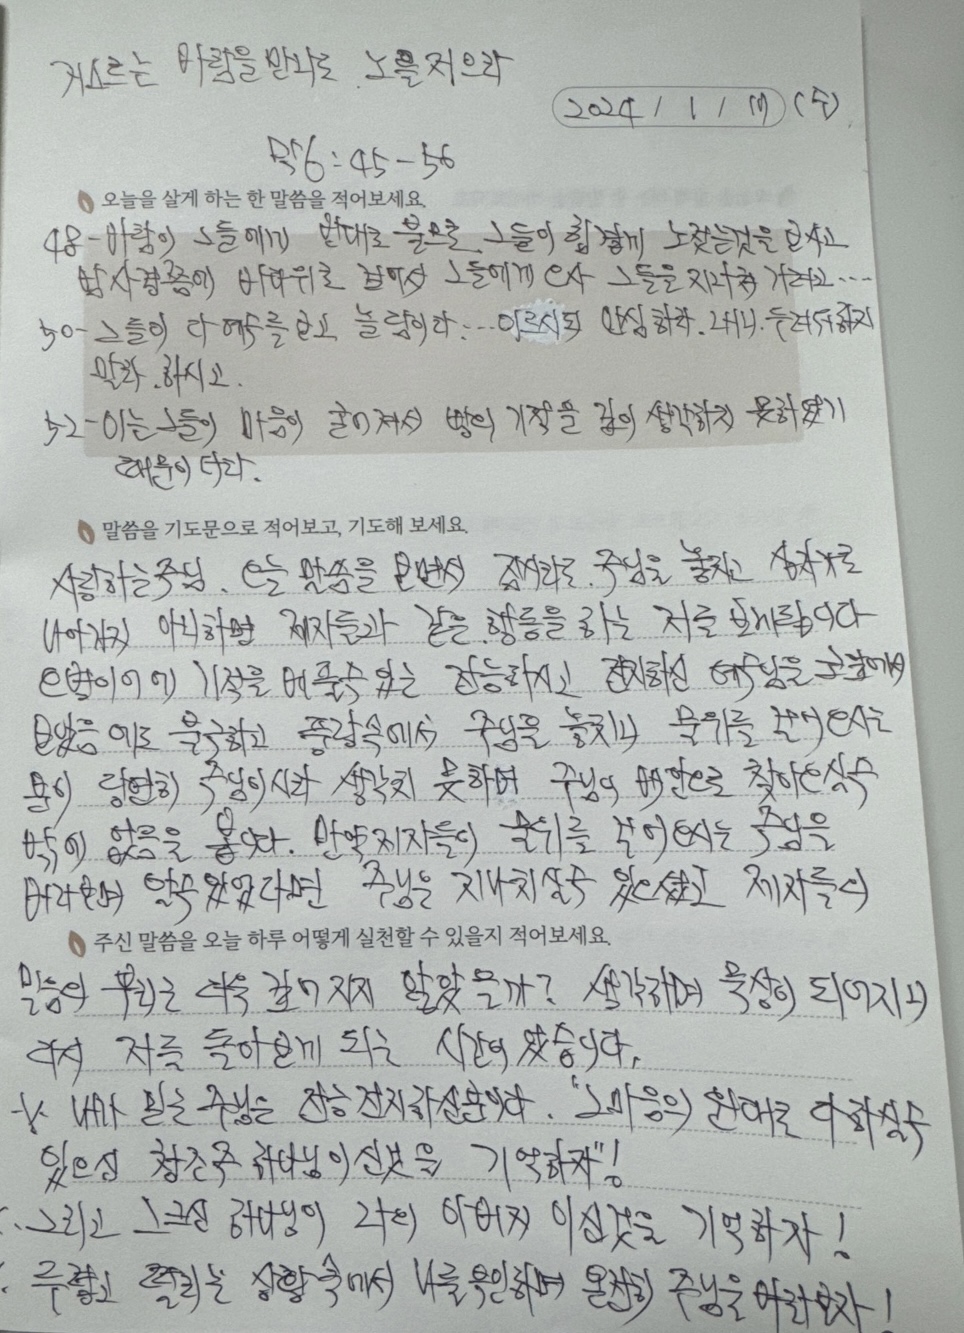 거스르는 바람을 만나도 노를 저으라
2024 / 1 / 17 (수)
막6:45-56
오늘을 살게 하는 한 말씀을 적어보세요.
48-바람이 그들에게 반대로 불므로 그들이 힘겹게 노젓는것을 보시고
밤사경쯤에 바다위로 걸어서 그들에게 오사 그들을 지나쳐 가려고....
50-그들이 다 예수를 보고 놀람이라... 이르시되 안심하라. 내니. 두려워하지
말라. 하시고.
52-이는 그들이 마음이 굳어져서 떡의 기적을 깊이 생각하지 못하였기
때문이더라.
말씀을 기도문으로 적어보고, 기도해 보세요.
사랑하는 주님. 오늘 말씀을 보면서 잠시라도 주님을 놓치고 십자가로
나아가지 아니하면 제자들과 같은 행동을 하는 저를 보게됩니다
오병이어에 기적을 베풀수 있는 전능하시고 전지하신 예수님을 눈앞에서
보았음에도 불구하고 풍랑속에서 주님을 놓치니 물위를 걸어오시는
분이 당연히 주님이시라 생각치 못하며 주님이 배안으로 찾아오실수
밖에 없음을 봅니다. 만약 제자들이 물위를 걸어오시는 주님을
바라보며 알수 있었다면 주님은 지나치실수 있으셨고 제자들의
주신 말씀을 오늘 하루 어떻게 실천할 수 있을지 적어보세요.
믿음의 뿌리는 더욱 깊어지지 않았을까? 생각하며 묵상이 되어지니
다시 저를 돌아보게 되는 시간이었습니다.
* 내가 믿는 주님은 전능 전지하신분이다. "그마음의 원대로 다 하실수
있으신 창조주 하나님이신것을 기억하자"!
그리고 그크신 하나님이 나의 아버지 이신것을 기억하자!
두렵고 떨리는 상황속에서 나를 부인하며 온전히 주님을 바라보자!